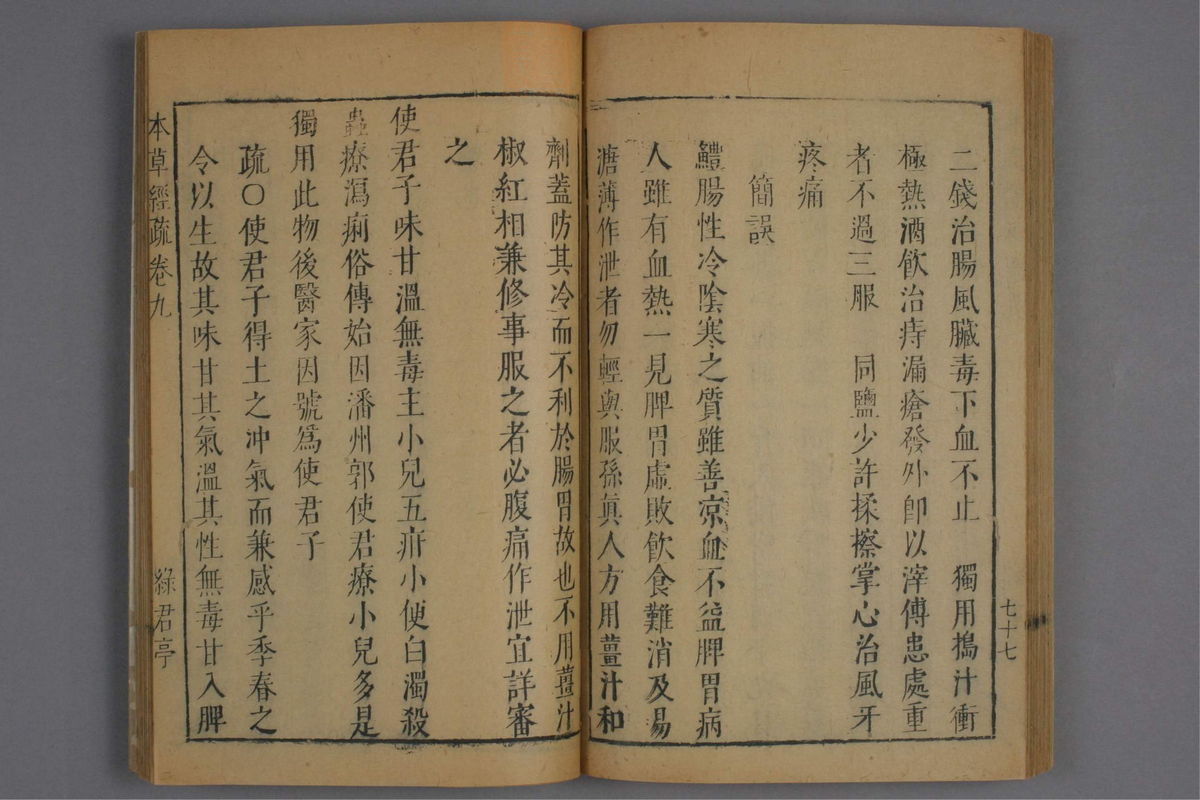 二錢治腸風臟毒下血不止　獨用搗汁衝
極熱酒飲治痔漏瘡發外卽以滓傅患處重
者不過三服　同鹽少許揉擦掌心治風牙
疼痛
簡誤
鱧腸性冷陰寒之質雖善凉血不益脾胃病
人雖有血熱一見脾胃虛敗飲食難消及易
溏薄作泄者勿輕與服孫眞人方用薑汁和
七十七
劑蓋防其冷而不利於腸胃故也不用薑汁
椒紅相兼修事服之者必腹痛作泄宜詳審
之
使君子味甘溫無毒主小兒五疳小便白濁殺
蟲療瀉痢俗傳始因潘州郭使君療小兒多是
獨用此物後醫家因號爲使君子
疏〇使君子得土之冲氣而兼感乎季春之
令以生故其味甘其氣溫其性無毒甘入脾
本草經疏卷九
綠君亭